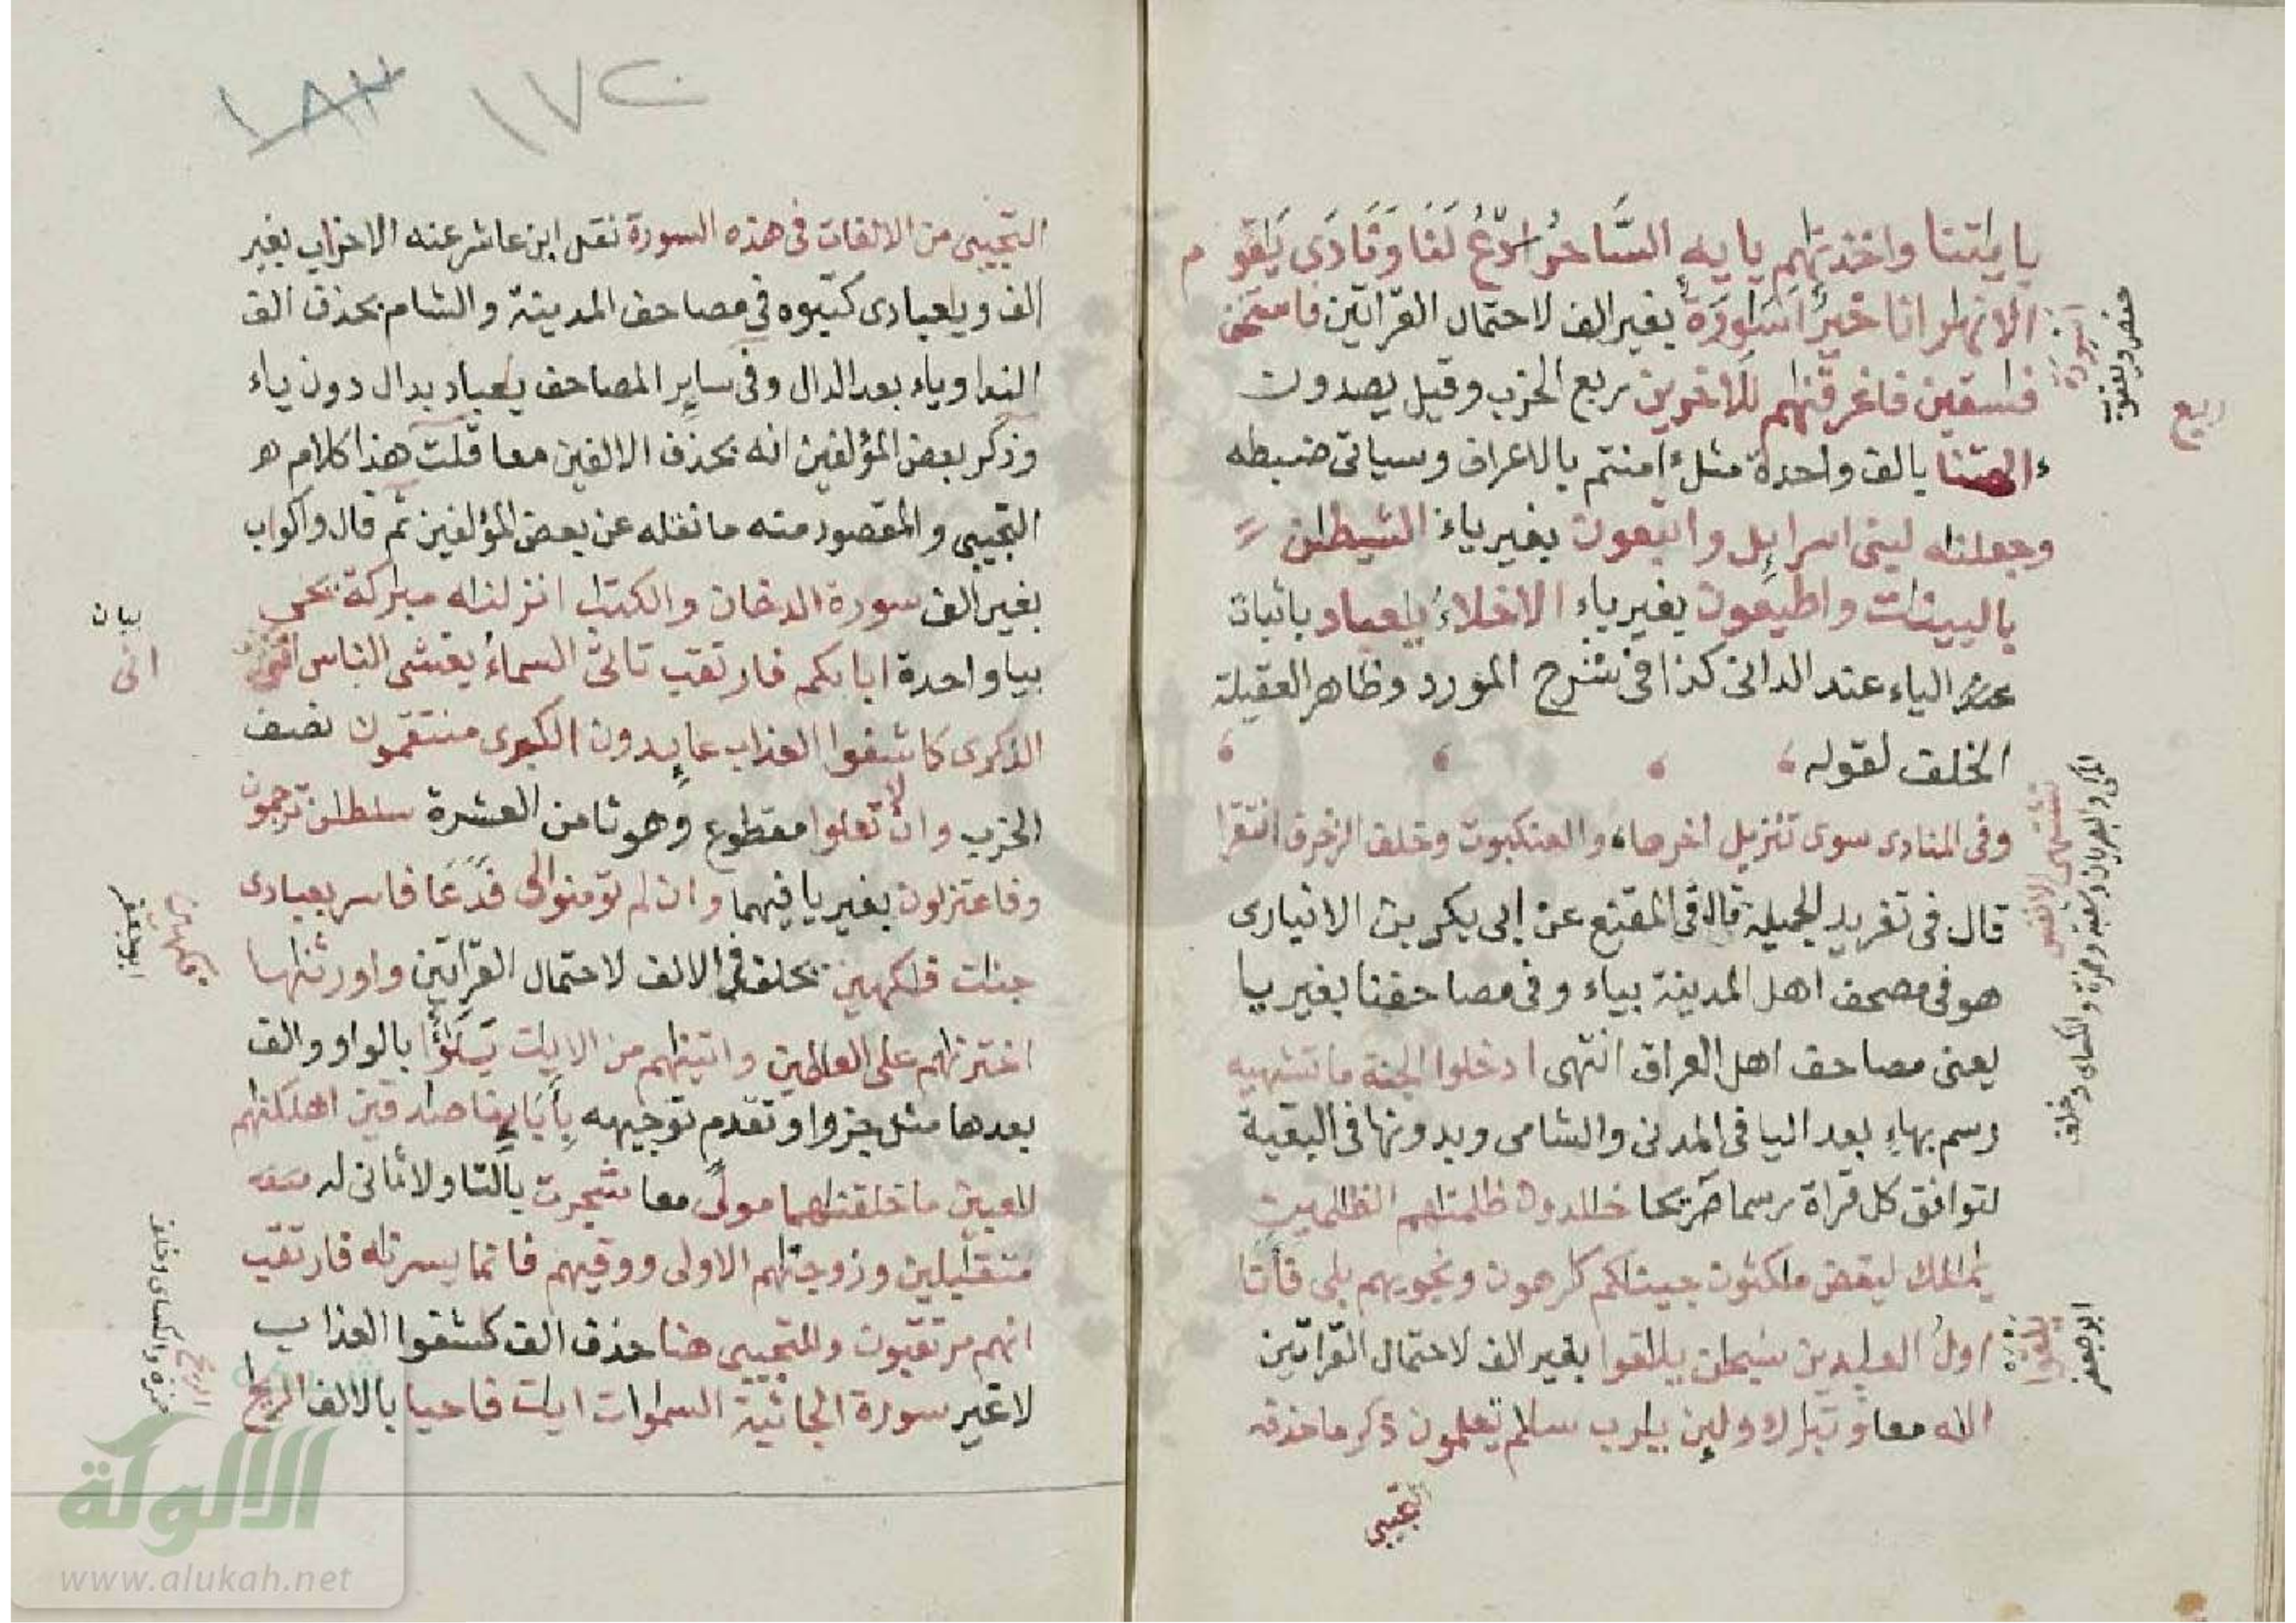 بايتنا واخذنهم يايه الساحر ادع لنا ونادى يقوم
الانهر انا خير اسورة بغير الف لاحتمال القراتين فاستخف
فسقين فاغرقنهم للاخرين ربع الحزب وقيل يصدون
ءالهتنا بالف واحدة مثل ءامنتم بالاعراف وسياتى ضبطه
وجعلنه لبنى اسرايل واتبعون بغير ياء الشيطن
بالبينت واطيعون بغير ياء الاخلاء يعباد باثبات
الياء عند الدانى كذا فى شرح المورد وظاهر العقيلة
الخلف لقوله
وفى المنادى سوى تنزيل اخرها والعنكبوت وخلف الزخرف انتقرا
قال فى تغريد الجميلة قال فى المقنع عن ابى بكر بن الانبارى
هو فى مصحف اهل المدينة بياء وفى مصاحفنا بغير يا
يعنى مصاحف اهل العراق انتهى ادخلوا الجنة ما تشتهيه
رسم بهاء بعد اليا فى المدنى والشامى وبدونها فى البقية
لتوافق كل قراة رسما صريحا خلدون ظلمنهم الظلمين
يملك ليقض مكثون جئنكم كرهون ونجويهم بلى فانا
اول العبدين سبحن يلقوا بغير الف لاحتمال القراتين
اله معا وتبرك ولين يرب سلم تعلمون ذكر ما حذفه
التجيبى
اسورة
حفص ويعقوب
ربع
تشتهى الانفس
المكى والبصريان وشعبة وحمزة والكساى وخلف
يلقوا
ابو جعفر
١٧٢
١٨٣
التجيبى من الالفات فى هذه السورة نقل ابن عاشر عنه الاحزاب بغير
الف ويعبادى كتبوه فى مصاحف المدينة والشام بحذف الف
الندا وياء بعد الدال وفى ساير المصاحف يعباد بدال دون ياء
وذكر بعض المؤلفين انه بحذف الالفين معا قلت هذا كلام
التجيبى والمقصود منه ما نقله عن بعض المؤلفين ثم قال واكواب
بغير الف سورة الدخان والكتب انزلنه مبركة يحى
بيا واحدة ابايكم فارتقب تاتى السماء يغشى الناس انى
الذكرى كاشفوا العذاب عايدون الكبرى منتقمون نصف
الحزب وان لا تعلوا مقطوع وهو ثامن العشرة سلطن ترجمون
وفاعتزلون بغير يا فيهما وان لم تومنوا لى فدعا فاسر بعبادى
جنت فكهين بخلف فى الالف لاحتمال القراتين واورثنها
اخترنهم على العلمين واتينهم من الايت بلؤا بالواو والف
بعدها مثل جزوا وتقدم توجيهه باباينا صدقين اهلكنهم
لعبين ما خلقنهما مولى معا شجرت بالتا ولا ثانى له
متقبلين وزوجنهم الاولى ووقيهم فانما يسرنه فارتقب
انهم مرتقبون وللتجيبى هنا حذف الف كشفوا العذاب
لا غير سورة الجاثية السموات ايت فاحيا بالالف الريح
بيان
انى
فكهين
ابو جعفر
الريح
حمزة والكساى وخلف
الالوكة
www.alukah.net